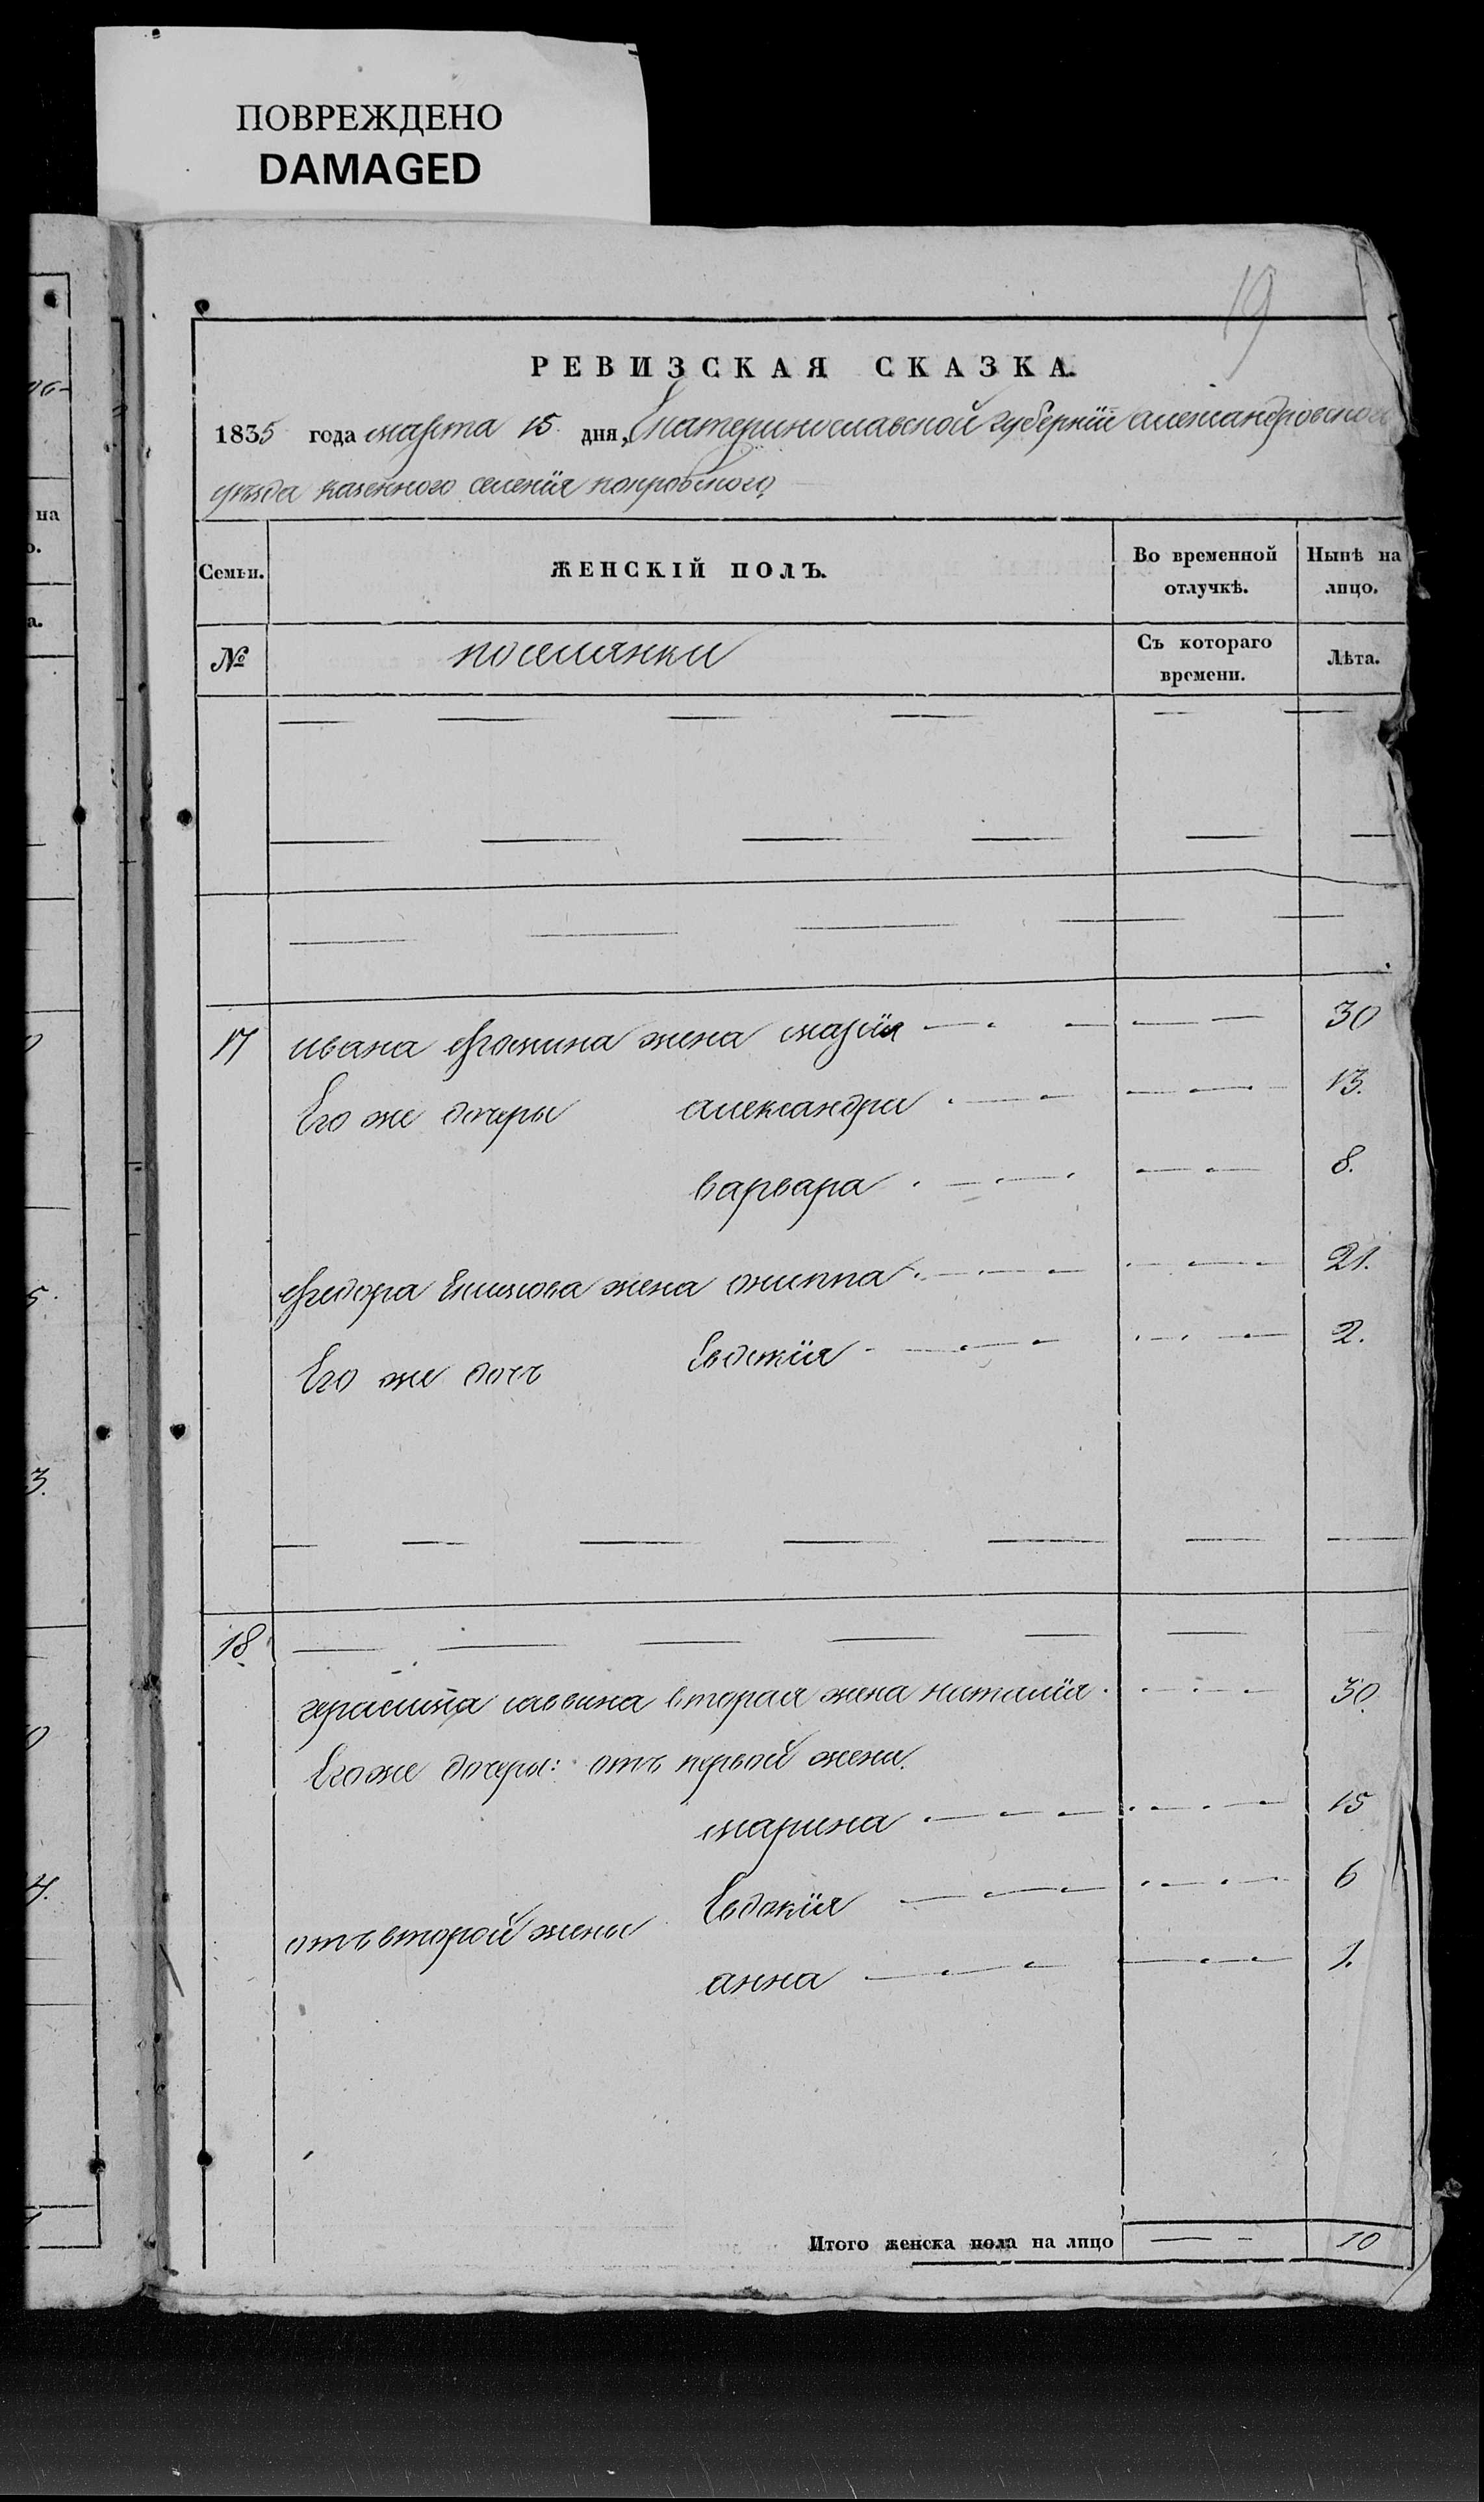 ПОВРЕЖДЕНО
DAMAGED
19
РЕВИЗСКАЯ СКАЗКА.
1835 года марта 15 дня, Екатеринославской губернїи александровского
уезда казенного селенїя покровского
Семьи. ЖЕНСКІЙ ПОЛЪ. Во временной отлучкѣ. Нынѣ на лицо.
№ поселянки Съ котораго времени. Лѣта.
17 ивана фомина жена марїя 30
Его же дочеры александра 13.
варвара 8.
федора Екимова жена 21.
Его же дочъ Евдокїя 2.
18
герасима саввина вторая жена наталїя 30.
Его же дочеры: отъ первой жены.
марина 15
Евдокїя 6
отъ второй жены
анна 1.
Итого женска пола на лицо 10